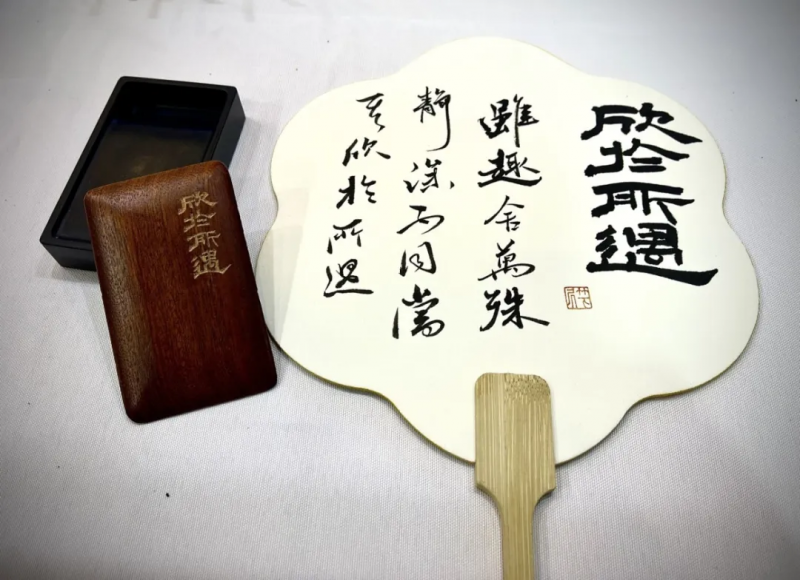 欣於所遇
雖趣舍萬殊
静躁不同當
其欣於所遇
欣於所遇